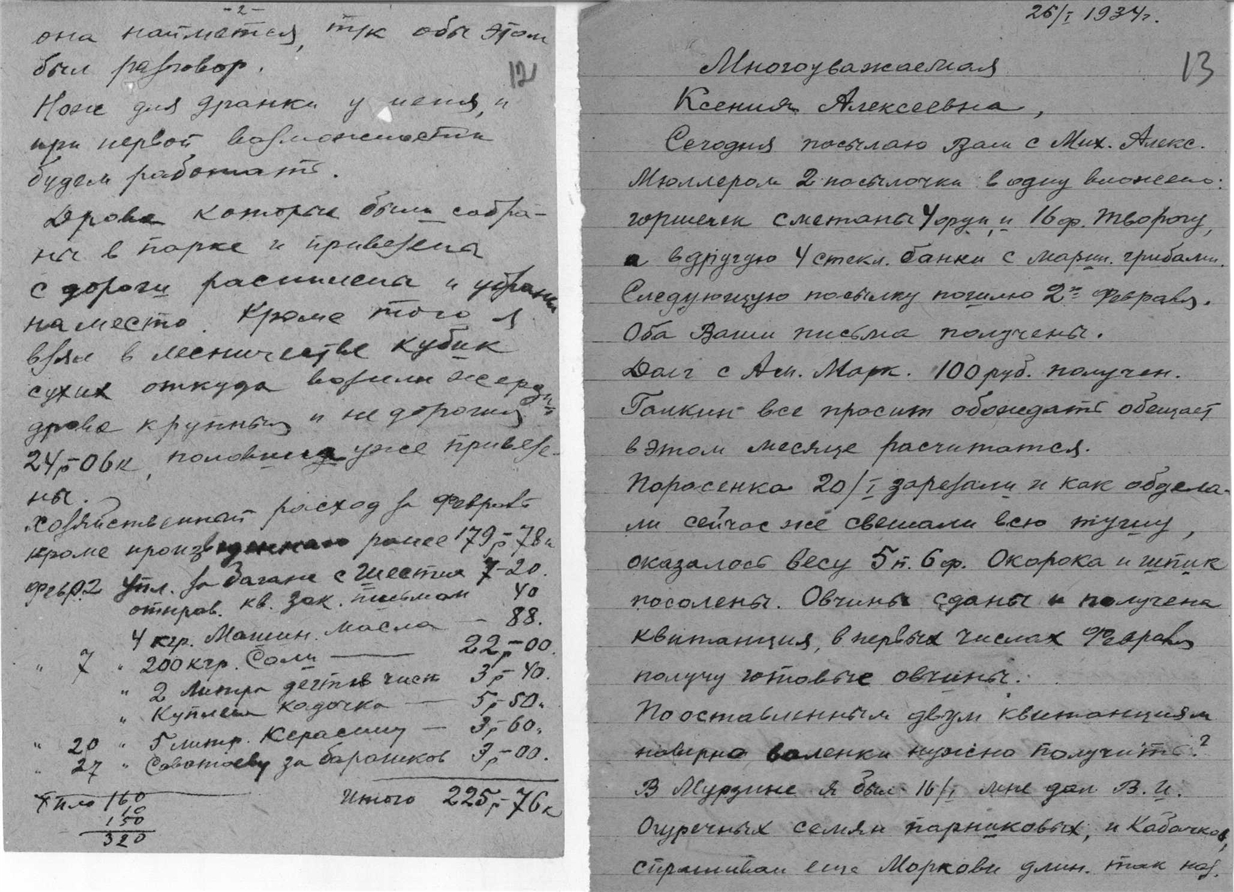 -2-
она наймется, т/к обы этом
был разговор.
12
Нож для дранки у меня, и
при первой возможности
будем работать.
Дрова которые были собра-
ны в парке и привезены
с дороги распилены и убраны
на место. Кроме того я
взял в лесничестве кубик
сухих откуда возили жерди
дрова крупныя и не дорогия
24р-06к, половина уже привезе-
ны.
Хозяйственный расход за Февраль
кроме произведеннаго ранее 179р-78к
Февр. 2 упл. за Баганс Шестия 7-20.
отправ. кв. зак. письмом 40
4 кгр. Машин. масла — 88.
" 7 " 200 кгр. Соли — 22-00.
" 2 литра дегтя чист 3р-40.
" Куплена кадочка — 5р-50к
" 20 " 5 литр. Керасину — 3р-60к
" 27 " Саватееву за барашков 3р-00.
160
10
150
320
Итого 225р-76к
26/I 1934г.
13
Многоуважаемая
Ксения Алексеевна,
Сегодня посылаю Вам с Мих. Алекс.
Мюллером 2 посылочки в одну вложено:
горшечек сметаны 4 фун. и 16 ф. творогу,
а в другую 4 стекл. банки с марин. грибами.
Следующую посылку пошлю 2го Февраля.
Оба Ваши письма получены.
Долг с Ан. Марк. 100 руб. получен.
Галкин все просит обождать обещает
в этом месяце расчитатся.
Поросенка 20/I зарезали и как обдела-
ли сейчас же свешали всю тушу,
оказалось весу 5 п. 6 ф. Окорока и шпик
посолены. Овчины сданы и получена
квитанция, в первых числах Февраля
получу готовые овчины.
По оставленным двум квитанциям
наверно валенки нужно получить?
В Мурзине я был 16/I мне дал В. И.
Огуречных семян парниковых, и Кабачков,
спрашивал еще Моркови длин. так наз.